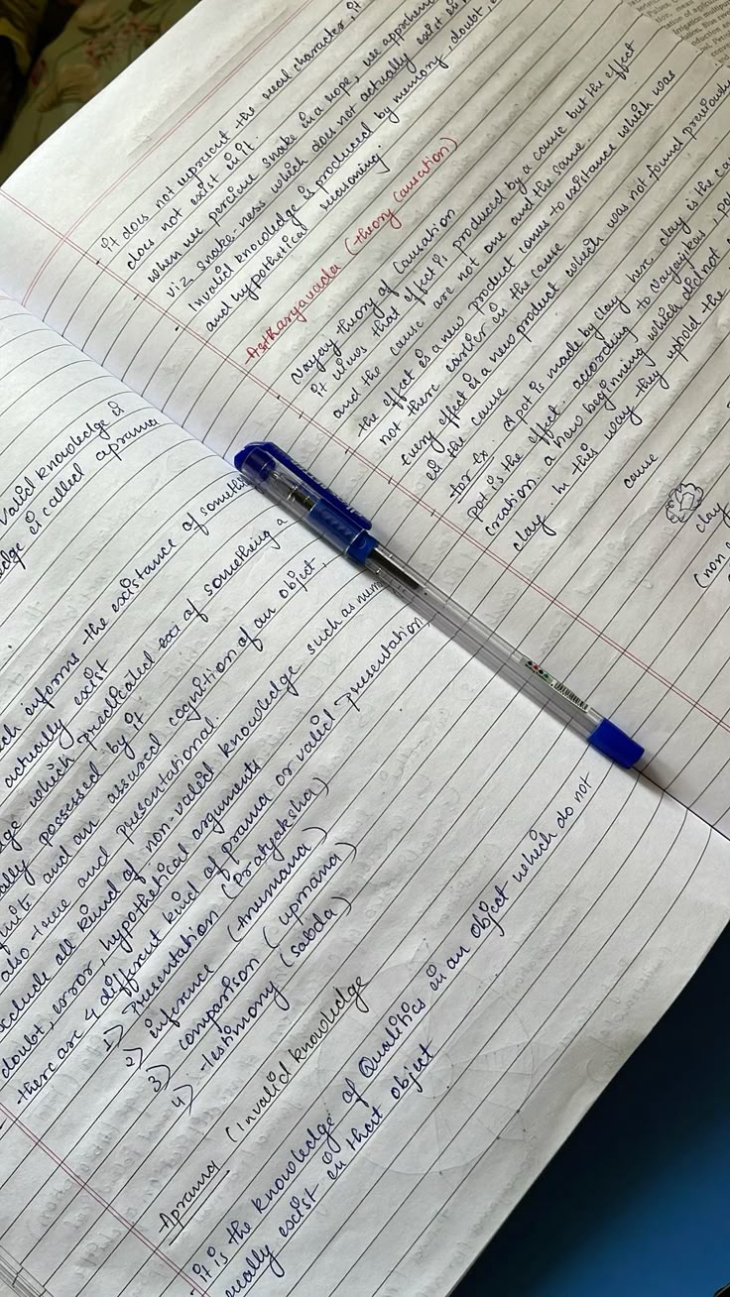 Valid knowledge is
edge is called aprama
ch informs the existance of someth
actually exist
ge which predicated exi of something a
ally possessed by it
and an assured cognition of an object,
also true and presentational.
exclude all kind of non-valid knowledge such as mem
doubt, error, hypothetical arguments
there are 4 different kind of prama or valid presentation
1) Presentation (Pratyaksha)
2) inference (Anumana)
3) comparison (upmana)
4) testimony (Sabda)
Aprama (Invalid knowledge
it is the knowledge of Qualities in an object which do not
ually exist in that object
it does not represent the real character, it
does not exist in it.
when we percive snake in a rope, we apprehen
viz snake-ness which does not actually exist in
Invalid knowledge is produced by memory, doubt,
and hypothetical reasoning.
Astkaryavada (theory causation)
Nayay theory of Causation
it views that effect is produced by a cause but the effect
and the cause are not one and the same.
the effect is a new product comes to existance which was
not there earlier in the cause
Every effect is a new product which was not found previously
in the cause
for Ex. A pot is made by clay, here clay is the ca
pot is the effect. according to Nayayikas,
Creation. a new beginning which did not
clay. In this way they uphold the
cause
clay
(non